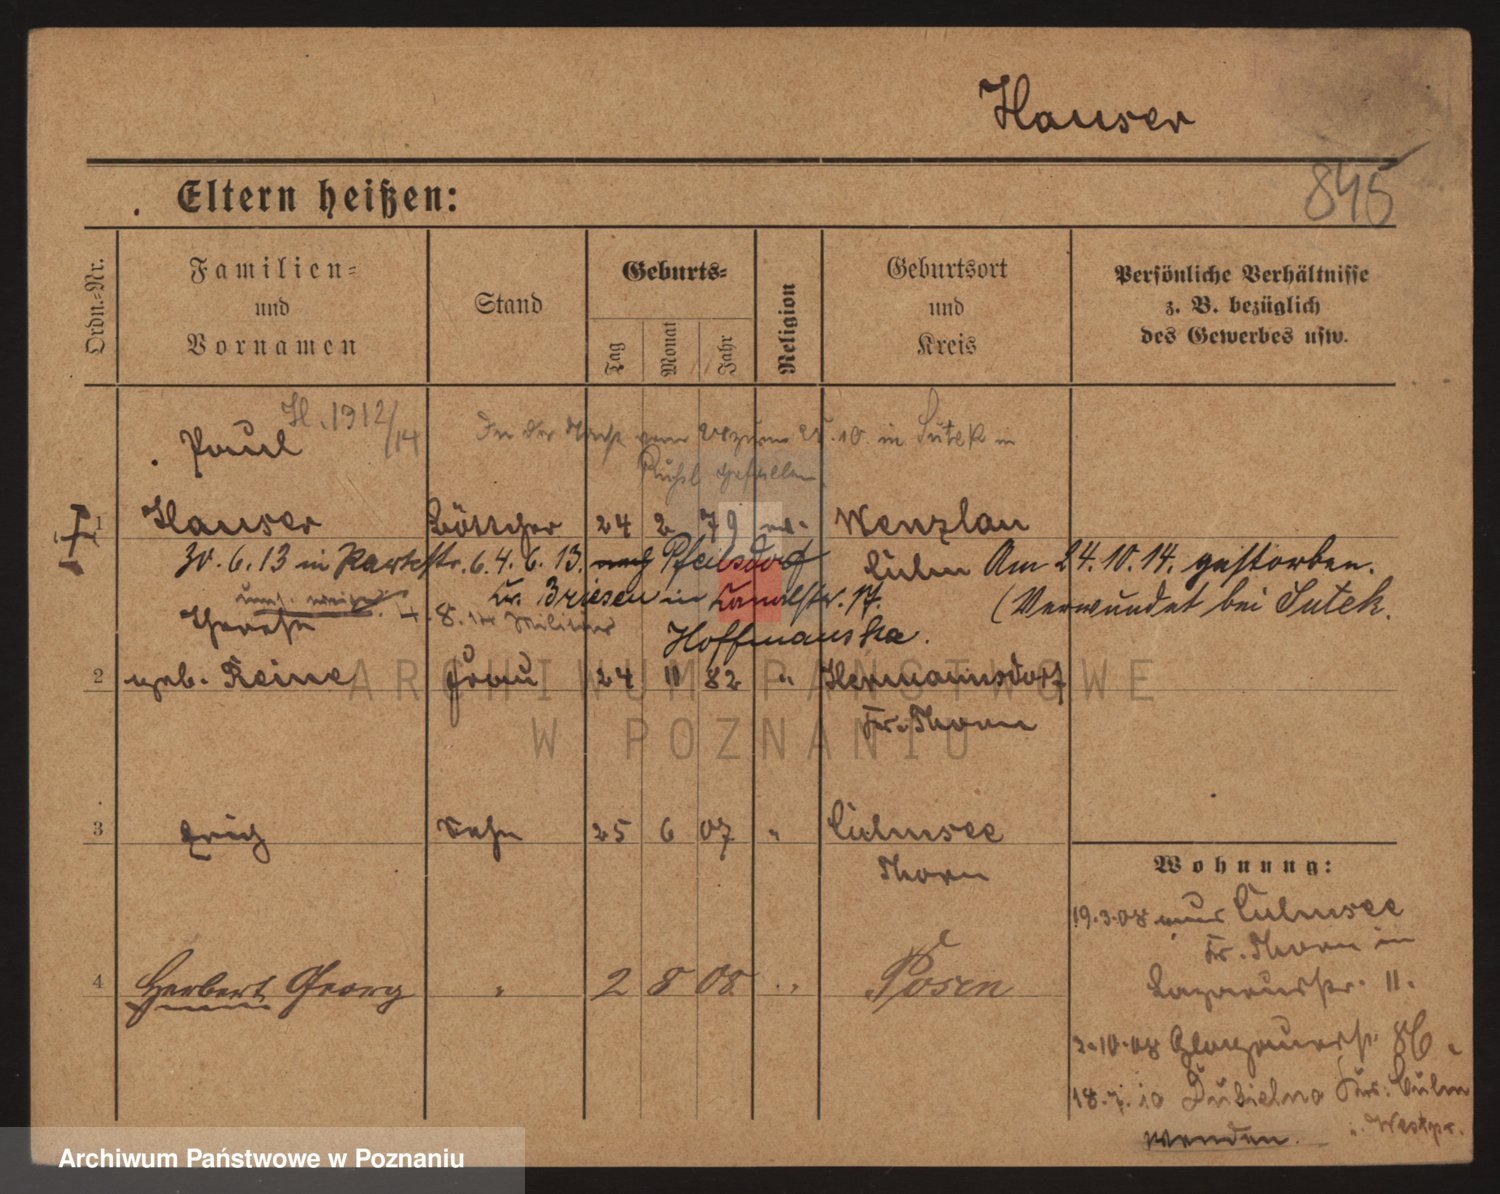 Hauser
845
Eltern heißen:
Ordn.=Nr.
Familien=
und
Vornamen
Stand
Geburts=
Tag
Monat
Jahr
Religion
Geburtsort
und
Kreis
Persönliche Verhältnisse
z. B. bezüglich
des Gewerbes usw.
H. 1912/14
In der Nacht vom zum 10. in Sutek in
gefallen
Paul
1 Hauser Böttcher 24 2 79 ev. Wenzlau
Culm
30.6.13 in Parkstr. 6. 4.6.13. Pfeilsdorf
Am 24.10.14. gestorben.
Kr. Briesen in Kanalstr. 17.
(Verwundet bei Sutek.
Hoffmanska.
Therese
8. Militär
2 geb. Reine Frau 24 11 82 " Hermannsdorf
Kr. Thorn
3 Erich Sohn 25 6 07 " Culmsee
Thorn
4 Herbert Georg " 2 8 08 " Posen
Wohnung:
19.3.08 aus Culmsee
Kr. Thorn in
Lazarusstr. 11.
2.10.08 Glogauerstr. 86.
18.7.10 Dubielno Krs. Culm
i. Westpr.
wenden.
ARCHIWUM PAŃSTWOWE
W POZNANIU
Archiwum Państwowe w Poznaniu